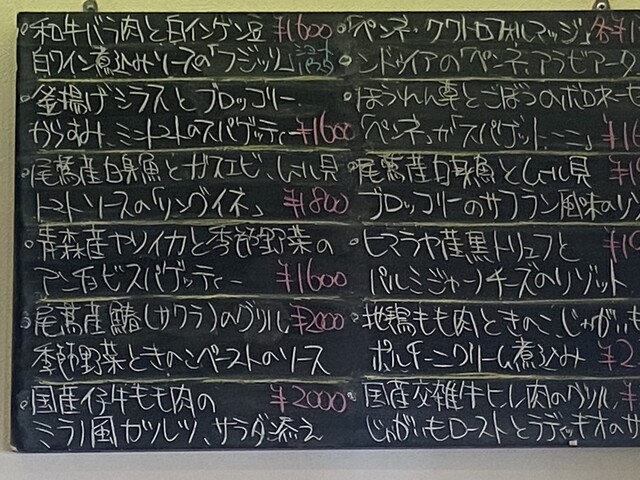 和牛バラ肉と白インゲン豆 ¥1600
白ワイン煮込みソースの「フジッリ」ショートパスタ
釜揚げシラスとブロッコリー
からすみ、ミニトマトのスパゲッティー ¥1600
尾鷲産白身魚とガスエビ、ムール貝
トマトソースの「リングイネ」 ¥1800
青森産ヤリイカと季節野菜の
アンチョビスパゲッティー ¥1600
尾鷲産鰆(サワラ)のグリル ¥2000
季節野菜ときのこペーストのソース
国産仔牛もも肉の ¥2000
ミラノ風カツレツ、サラダ添え
「ペンネ・クワトロフォルマッジ」各¥1
ンドゥイアの「ペンネ、アラビアータ
ほうれん草とごぼうのボロネーゼ
「ペンネ」か「スパゲットーニ」 ¥1
尾鷲産白身魚とムール貝 ¥1
ブロッコリーのサフラン風味のリ
ヒマラヤ産黒トリュフと ¥19
パルミジャーノチーズのリゾット
地鶏もも肉ときのこ、じゃがいも
ポルチーニクリーム煮込み ¥2
国産交雑牛ヒレ肉のグリル、¥
じゃがいもローストとラディッキオのサ